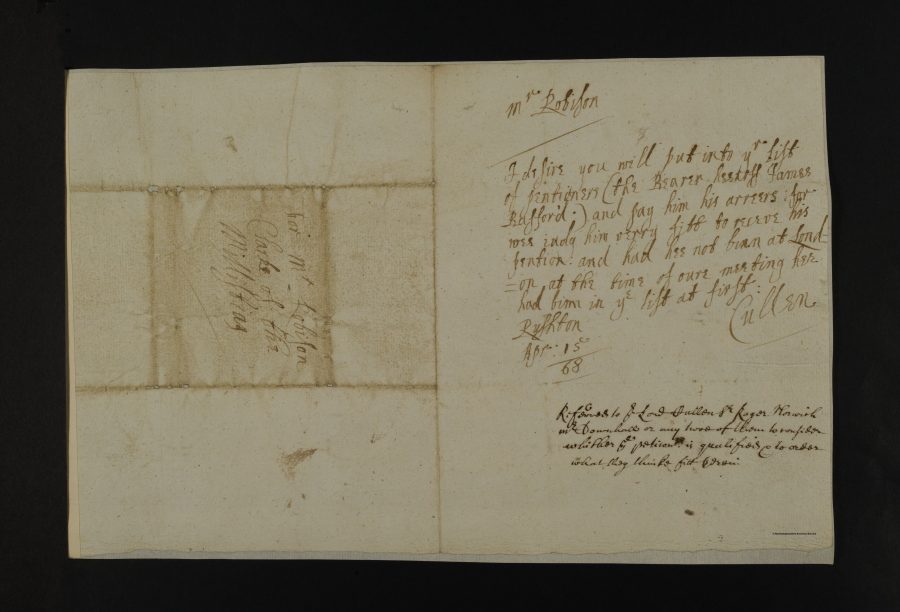 mr. Robison
I desire you will put into yr. list
of pentioners (the Bearer heeroff James
Bafford;) and pay him his arreers: for
wee judg him verry fitt to receve his
pention: and had hee not binn at Lond-
=on at the time of oure meeting hee=
had binn in ye. list at first:
Cullen
Rushton
Apr: 15
68
Refered to ye Lord Cullen Sr Roger Norwich
mr Downhall or any two of them to consider
whither ye petitionr is qualified & to order
what they thinke fitt herein
for mr. Robison
Clarke of the
Millitiay